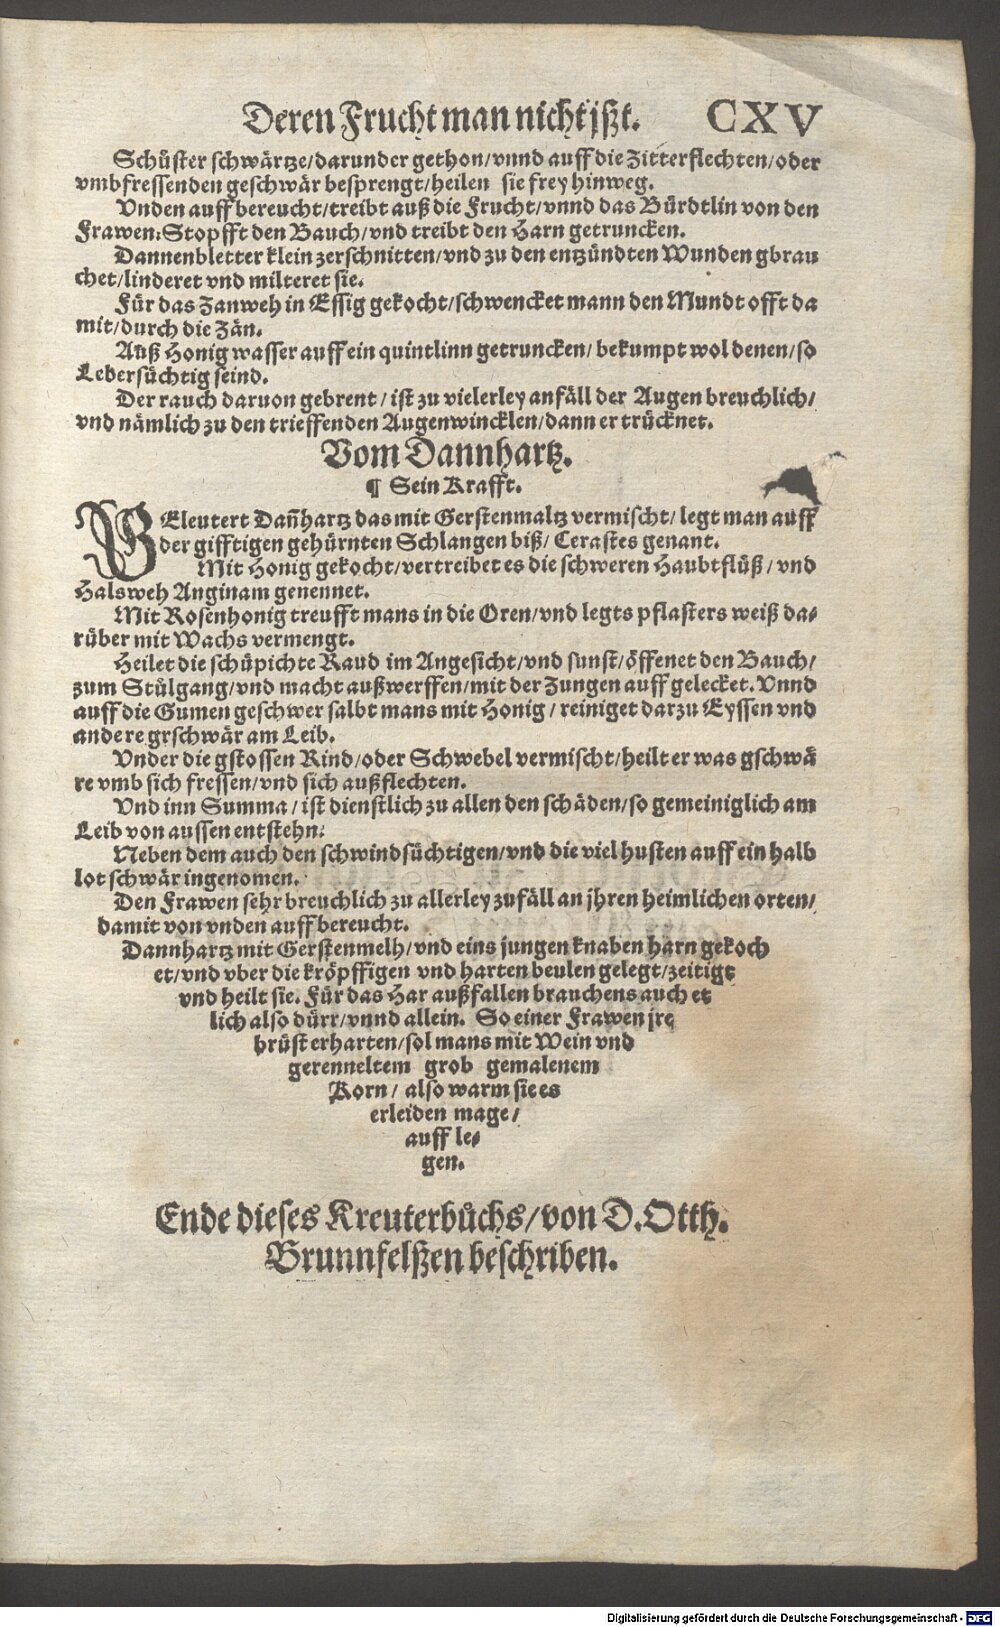 Deren Frucht man nicht jßt. CXV
Schůster schwärtze/darunder gethon/vnnd auff die Zitterflechten/oder
vmbfressenden geschwär besprengt/heilen sie frey hinweg.
Vnden auff bereucht/treibt auß die Frucht/vnnd das Bürdtlin von den
Frawen: Stopfft den Bauch/vnd treibt den Harn getruncken.
Dannenbletter klein zerschnitten/vnd zu den entzündten Wunden gbrau
chet/linderet vnd milteret sie.
Für das Zanweh in Essig gekocht/schwencket mann den Mundt offt da
mit/durch die Zän.
Auß Honig wasser auff ein quintlinn getruncken/ bekumpt wol denen/so
Lebersüchtig seind.
Der rauch daruon gebrent/ ist zu vielerley anfäll der Augen breuchlich/
vnd nämlich zu den trieffenden Augenwincklen/dann er trücknet.
Vom Dannhartz.
¶ Sein Krafft.
GEleutert Dañhartz das mit Gerstenmaltz vermischt/ legt man auff
der gifftigen gehürnten Schlangen biß/ Cerastes genant.
Mit Honig gekocht/vertreibet es die schweren Haubtflüß/ vnd
Halsweh Anginam genennet.
Mit Rosenhonig treufft mans in die Oren/vnd legts pflasters weiß da-
rüber mit Wachs vermengt.
Heilet die schüpichte Raud im Angesicht/vnd sunst/öffenet den Bauch/
zum Stůlgang/vnd macht außwerffen/mit der Zungen auff gelecket. Vnnd
auff die Gumen geschwer salbt mans mit Honig/ reiniget darzu Eyssen vnd
andere grschwär am Leib.
Vnder die gstossen Rind/oder Schwebel vermischt/heilt er was gschwä
re vmb sich fressen/vnd sich außflechten.
Vnd inn Summa/ ist dienstlich zu allen den schäden/so gemeiniglich am
Leib von aussen entstehn.
Neben dem auch den schwindsüchtigen/vnd die viel husten auff ein halb
lot schwär ingenomen.
Den Frawen sehr breuchlich zu allerley zufäll an jhren heimlichen orten/
damit von vnden auff bereucht.
Dannhartz mit Gerstenmelh/vnd eins jungen knaben harn gekoch
et/vnd vber die kröpffigen vnd harten beulen gelegt/zeitigt
vnd heilt sie. Für das Har außfallen brauchens auch et
lich also dürr/vnnd allein. So einer Frawen jre
brüst erharten/sol mans mit Wein vnd
gerenneltem grob gemalenem
Korn/ also warm sie es
erleiden mage/
auff le-
gen.
Ende dieses Kreuterbůchs/von D. Otth.
Brunnfelßen beschriben.
Digitalisierung gefördert durch die Deutsche Forschungsgemeinschaft - DFG